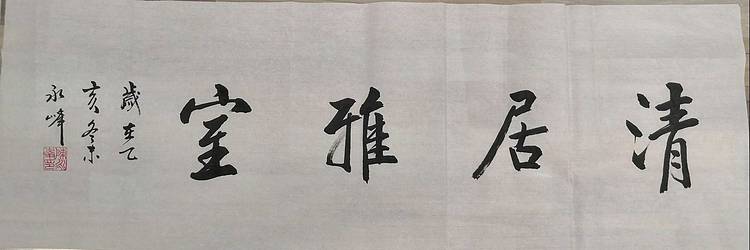 清居雅室
歲在乙
亥冬末
永峰